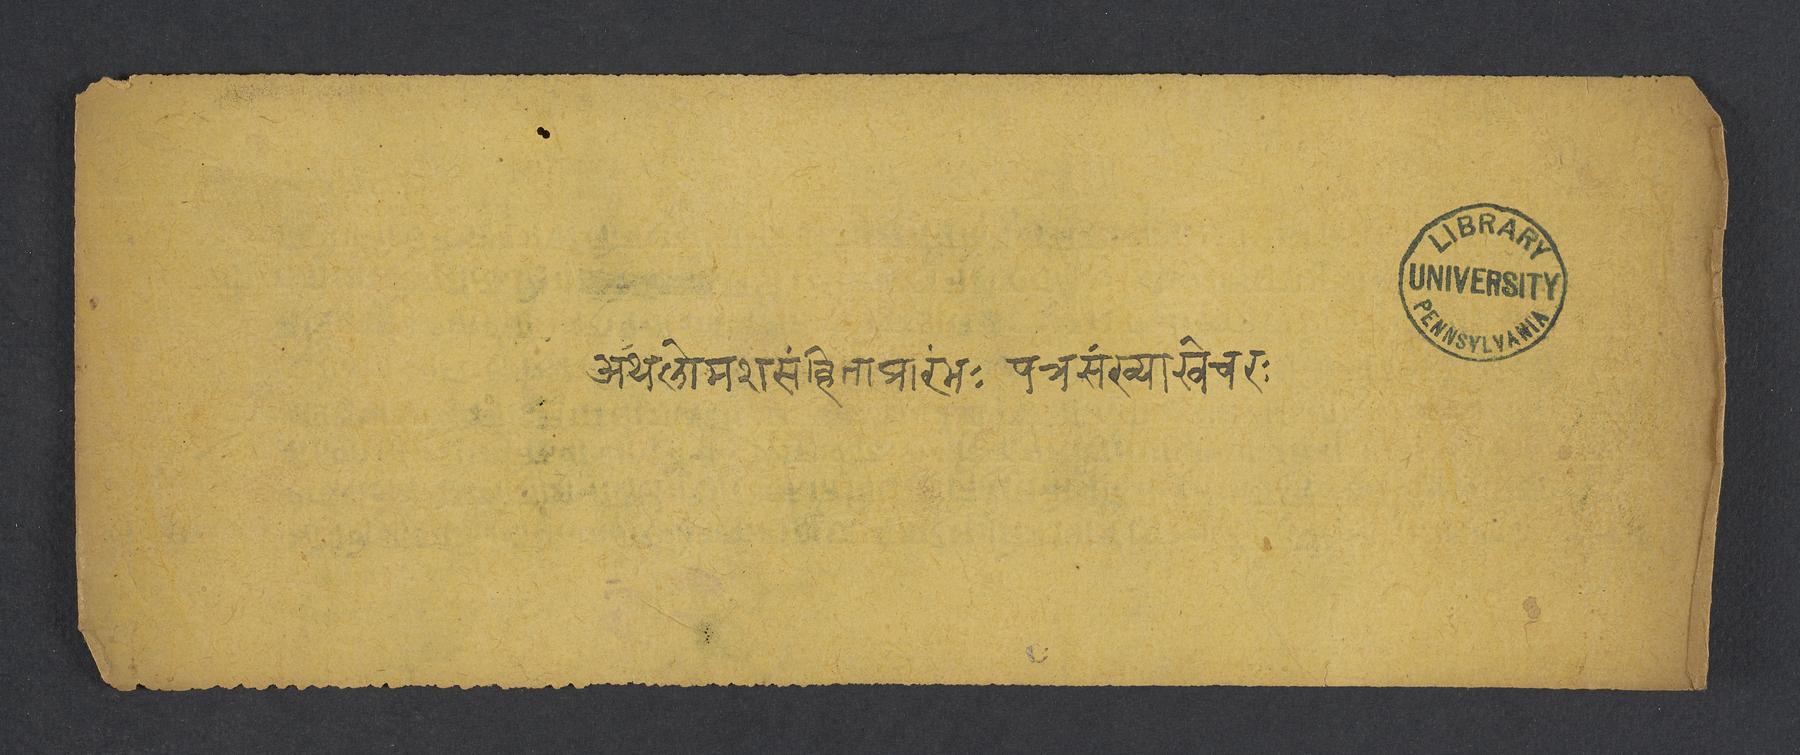 अथलोमशसंहिताप्रारंभः पत्रसंख्याखेचरः
LIBRARY
UNIVERSITY
PENNSYLVANIA